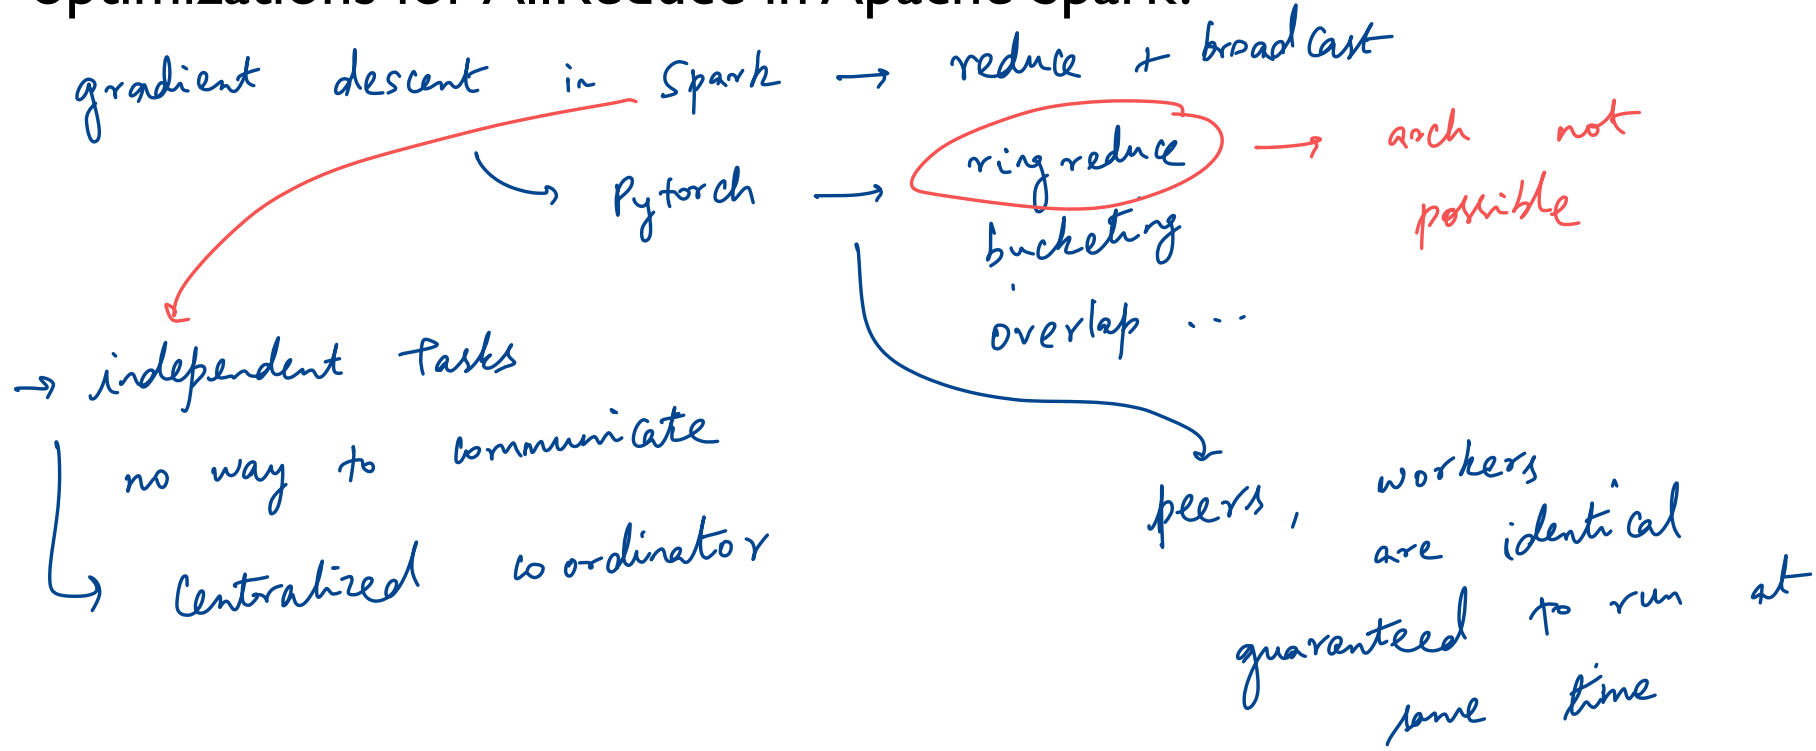 optimizations for AllReduce in Apache Spark.
gradient descent in Spark → reduce + broadcast
Pytorch → ring reduce → arch not possible
bucketing
overlap ...
→ independent tasks
no way to communicate
Centralized coordinator
peers, workers
are identical
guaranteed to run at
same time